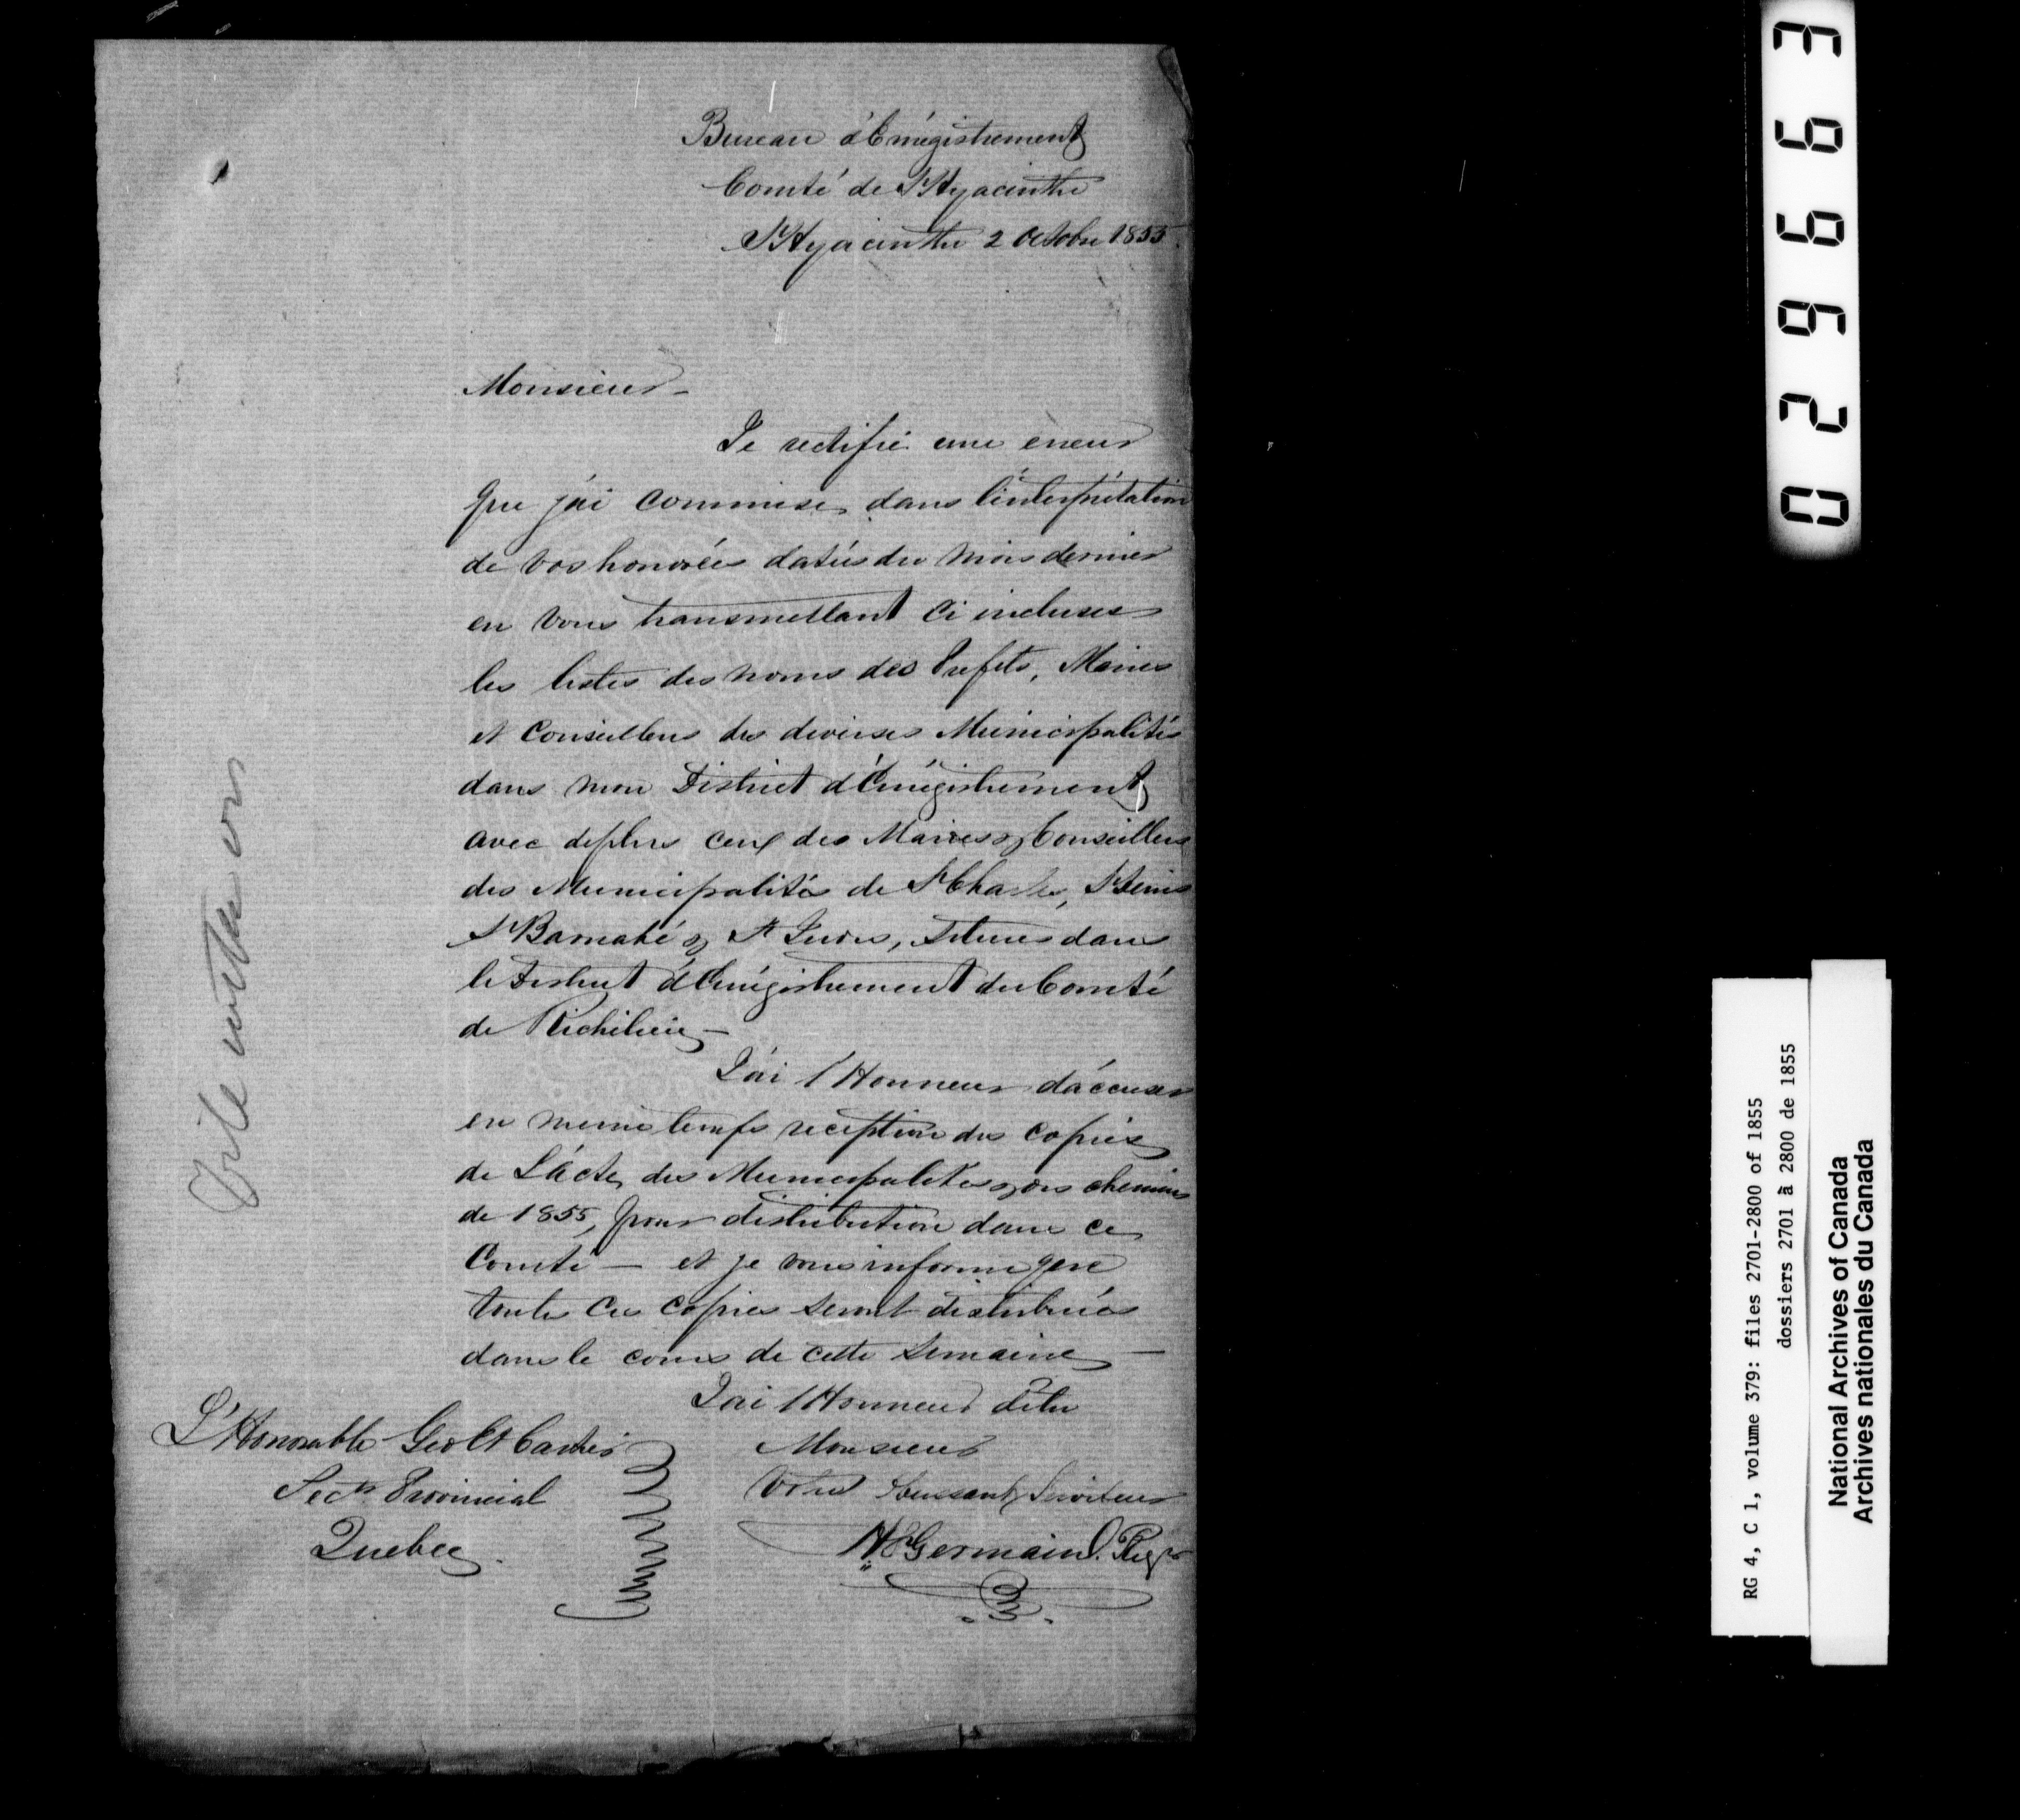 Bureau d'Enrégistrement
Comté de St Hyacinthe
St Hyacinthe 2 Octobre 1855
Monsieur -
Je rectifie une erreur
que j'ai commise dans l'interprétation
de vos honorées datées du mois dernier
en vous transmettant ci incluses
les listes des noms des Prefets, Maires
et Conseillers des diverses Municipalités
dans mon District d'Enrégistrement
avec deplus ceux des Maires & Conseillers
des Municipalités de St Charles, St Denis
St Barnabé & St Judes, situées dans
le District d'Enrégistrement du Comté
de Richelieu -
J'ai l'Honneur d'accuser
en meme temps reception des copies
de L'acte des Municipalités & des chemins
de 1855, pour distribution dans ce
Comté — et je vous informe que
toutes ces copies seront distribuées
dans le cours de cette semaine —
J'ai l'Honneur d'être
Monsieur
Votre Obeissant Serviteur
H St Germain Regr
L'Honorable Geo Et Cartier
Secte Provincial
Quebec.
File with ors
029663
RG 4, C 1, volume 379: files 2701-2800 of 1855
dossiers 2701 à 2800 de 1855
National Archives of Canada
Archives nationales du Canada